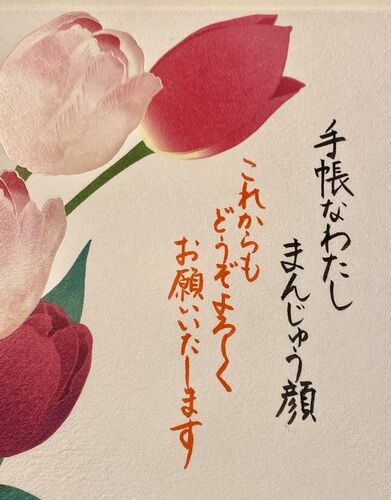 手帳なわたし
まんじゅう顔
これからも
どうぞよろしく
お願いいたします